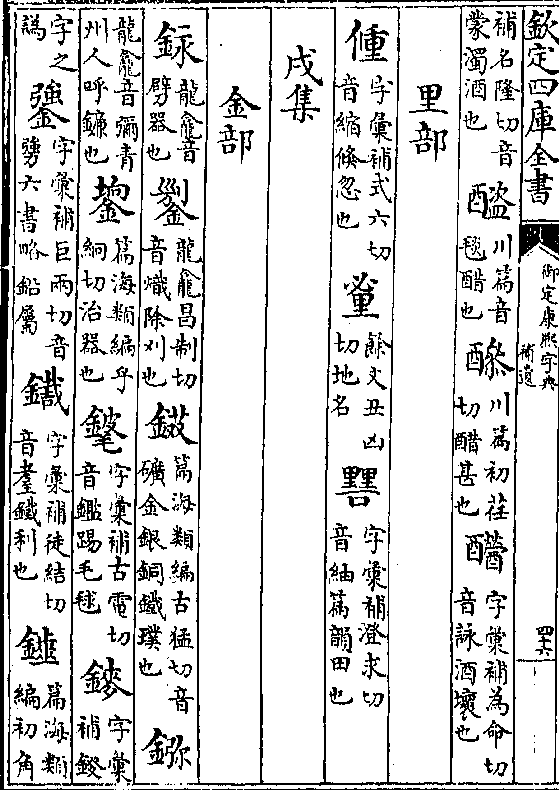 欽定四庫全書
御定康熙字典
補遺
四十六
補名隆切音
蒙濁酒也
川篇音
毯醋也
川篇初荏
切醋甚也
字彙補為命切
音詠酒壞也
里部
𠊧字彙補式六切
音縮倏忽也
餘文丑凶
切地名
字彙補澄求切
音紬篇韻田也
戌集
金部
録龍龕音
劈器也
龍龕昌制切
音熾除刈也
篇海類編古猛切音
礦金銀銅鐵璞也
鉩
龍龕音彌青
州人呼鐮也
篇海類編乎
絅切治器也
字彙補古電切
音鑑踢毛毬
字彙
補鋑
字之
譌
字彙補巨兩切音
彊六書略鉛屬
字彙補徒結切
音耋鐵利也
篇海類
編初角